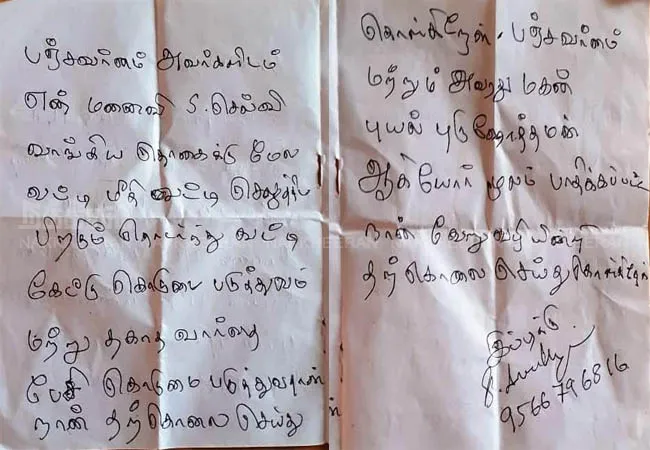 பர்சவர்னம் அவர்களிடம்
என் மனைவி S. செல்வி
வாங்கிய தொகைக்கு மேல
வட்டி மீதி வட்டி செலுத்திய
பிறகும் தொடர்ந்து வட்டி
கேட்டு கொடுமை படுத்துவம்
மற்று தகாத வார்தை
பேசி கொடுமை படுத்துவதால்
நான் தற்கொலை செய்து
கொள்கிறேன். பர்சவர்னம்
மற்றும் அவரது மகன்
புயல் புருஷோத்தமன்
ஆகியோர் மூலம் பாதிக்கப்பட்ட
நான் வேறுவழியின்றி
தற்கொலை செய்துகொள்கிறேன்
இப்படிக்கு
9566796816